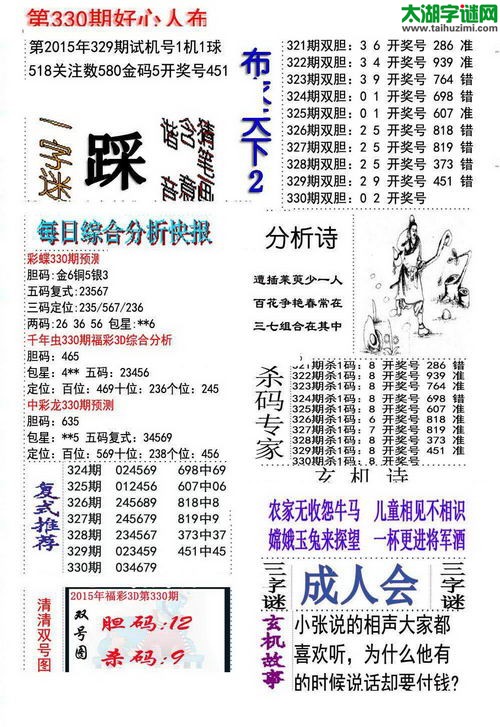 第330期好心人布
太湖字谜网
www.taihuzimi.com
第2015年329期试机号1机1球
518关注数580金码5开奖号451
一字迷
踩
布衣天下2
321期双胆：3 6 开奖号 286 准
322期双胆：3 4 开奖号 939 准
323期双胆：3 9 开奖号 764 错
324期双胆：0 1 开奖号 698 错
325期双胆：0 1 开奖号 607 准
326期双胆：2 5 开奖号 818 错
327期双胆：2 5 开奖号 819 错
328期双胆：2 5 开奖号 373 错
329期双胆：2 9 开奖号 451 错
330期双胆：0 2 开奖号
每日综合分析快报
彩蝶330期预测
胆码：金6铜5银3
五码复式：23567
三码定位：235/567/236
两码：26 36 56 包星：**6
千年虫330期福彩3D综合分析
胆码：465
包星：4** 五码：23456
定位：百位：469十位：236个位：245
中彩龙330期预测
胆码：635
包星：**5 五码复式：34569
定位：百位：569十位：238个位：456
分析诗
遭插茱萸少一人
百花争艳春常在
三七组合在其中
杀码专家
321期杀1码：8 开奖号 286 错
322期杀1码：8 开奖号 939 准
323期杀1码：8 开奖号 764 准
324期杀1码：8 开奖号 698 错
325期杀1码：8 开奖号 607 准
326期杀1码：7 开奖号 818 准
327期杀1码：7 开奖号 819 准
328期杀1码：8 开奖号 373 准
329期杀1码：8 开奖号 451 准
330期杀1码：8 开奖号
复式推荐
324期 024569 698中69
325期 012456 607中06
326期 245689 818中8
327期 245679 819中9
328期 234567 373中37
329期 023479 451中45
330期 034679
玄机诗
农家无收怨牛马 儿童相见不相识
嫦娥玉兔来探望 一杯更进将军酒
三字谜
成人会
三字谜
清清双号图
2015年福彩3D第330期
双号图
胆码:12
杀码:9
玄机故事
小张说的相声大家都
喜欢听，为什么他有
的时候说话却要付钱?